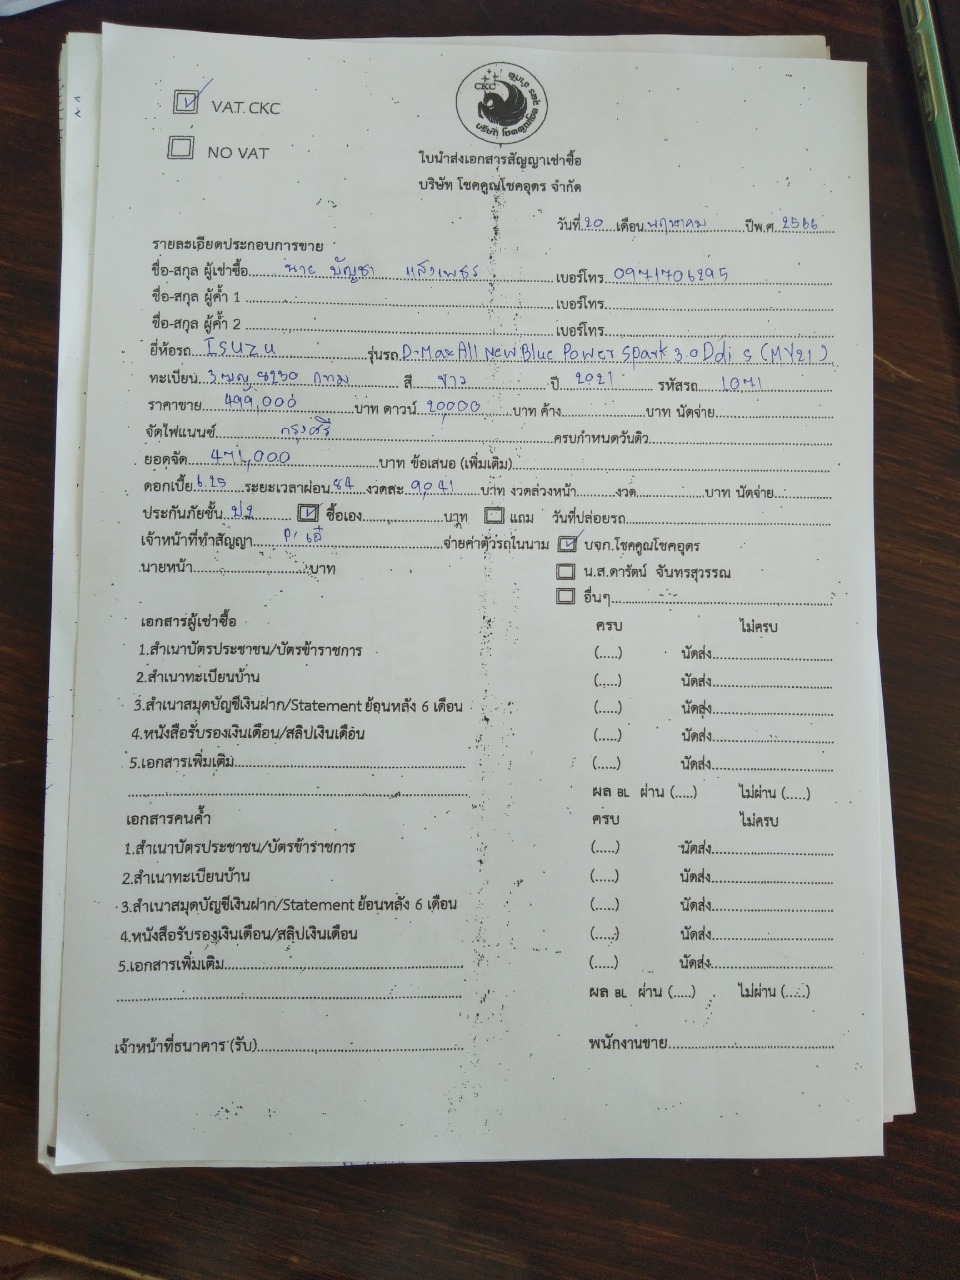 VAT. CKC
NO VAT
CKC
ใบนำส่งเอกสารสัญญาเช่าซื้อ
บริษัท โชคคูณโชคอุดร จำกัด
วันที่ 20 เดือน พฤษภาคม ปีพ.ศ. 2566
รายละเอียดประกอบการขาย
ชื่อ-สกุล ผู้เช่าซื้อ นาย บัญชา แสงเพชร เบอร์โทร 0971706295
ชื่อ-สกุล ผู้ค้ำ 1 เบอร์โทร
ชื่อ-สกุล ผู้ค้ำ 2 เบอร์โทร
ยี่ห้อรถ Isuzu รุ่นรถ D-Max All New Blue Power Spark 3.0 Ddi S (MY21)
ทะเบียน 3ฒญ 8230 กทม สี ขาว ปี 2021 รหัสรถ 1071
ราคาขาย 499,000 บาท ดาวน์ 20,000 บาท ค้าง บาท นัดจ่าย
จัดไฟแนนซ์ กรุงศรี ครบกำหนดวันดิว
ยอดจัด 471,000 บาท ข้อเสนอ (เพิ่มเติม)
ดอกเบี้ย 6.25 ระยะเวลาผ่อน 84 งวดละ 9,041 บาท งวดล่วงหน้า งวด บาท นัดจ่าย
ประกันภัยชั้น ป2 ซื้อเอง บาท แถม วันที่ปล่อยรถ
เจ้าหน้าที่ทำสัญญา จ่ายค่าตัวรถในนาม บจก.โชคคูณโชคอุดร
นายหน้า บาท น.ส.ดารัตน์ จันทรสุวรรณ
อื่นๆ
เอกสารผู้เช่าซื้อ ครบ ไม่ครบ
1.สำเนาบัตรประชาชน/บัตรข้าราชการ (.....) นัดส่ง
2.สำเนาทะเบียนบ้าน (.....) นัดส่ง
3.สำเนาสมุดบัญชีเงินฝาก/Statement ย้อนหลัง 6 เดือน (.....) นัดส่ง
4.หนังสือรับรองเงินเดือน/สลิปเงินเดือน (.....) นัดส่ง
5.เอกสารเพิ่มเติม (.....) นัดส่ง
ผล BL ผ่าน (.....) ไม่ผ่าน (.....)
เอกสารคนค้ำ ครบ ไม่ครบ
1.สำเนาบัตรประชาชน/บัตรข้าราชการ (.....) นัดส่ง
2.สำเนาทะเบียนบ้าน (.....) นัดส่ง
3.สำเนาสมุดบัญชีเงินฝาก/Statement ย้อนหลัง 6 เดือน (.....) นัดส่ง
4.หนังสือรับรองเงินเดือน/สลิปเงินเดือน (.....) นัดส่ง
5.เอกสารเพิ่มเติม (.....) นัดส่ง
ผล BL ผ่าน (.....) ไม่ผ่าน (.....)
เจ้าหน้าที่ธนาคาร (รับ) พนักงานขาย